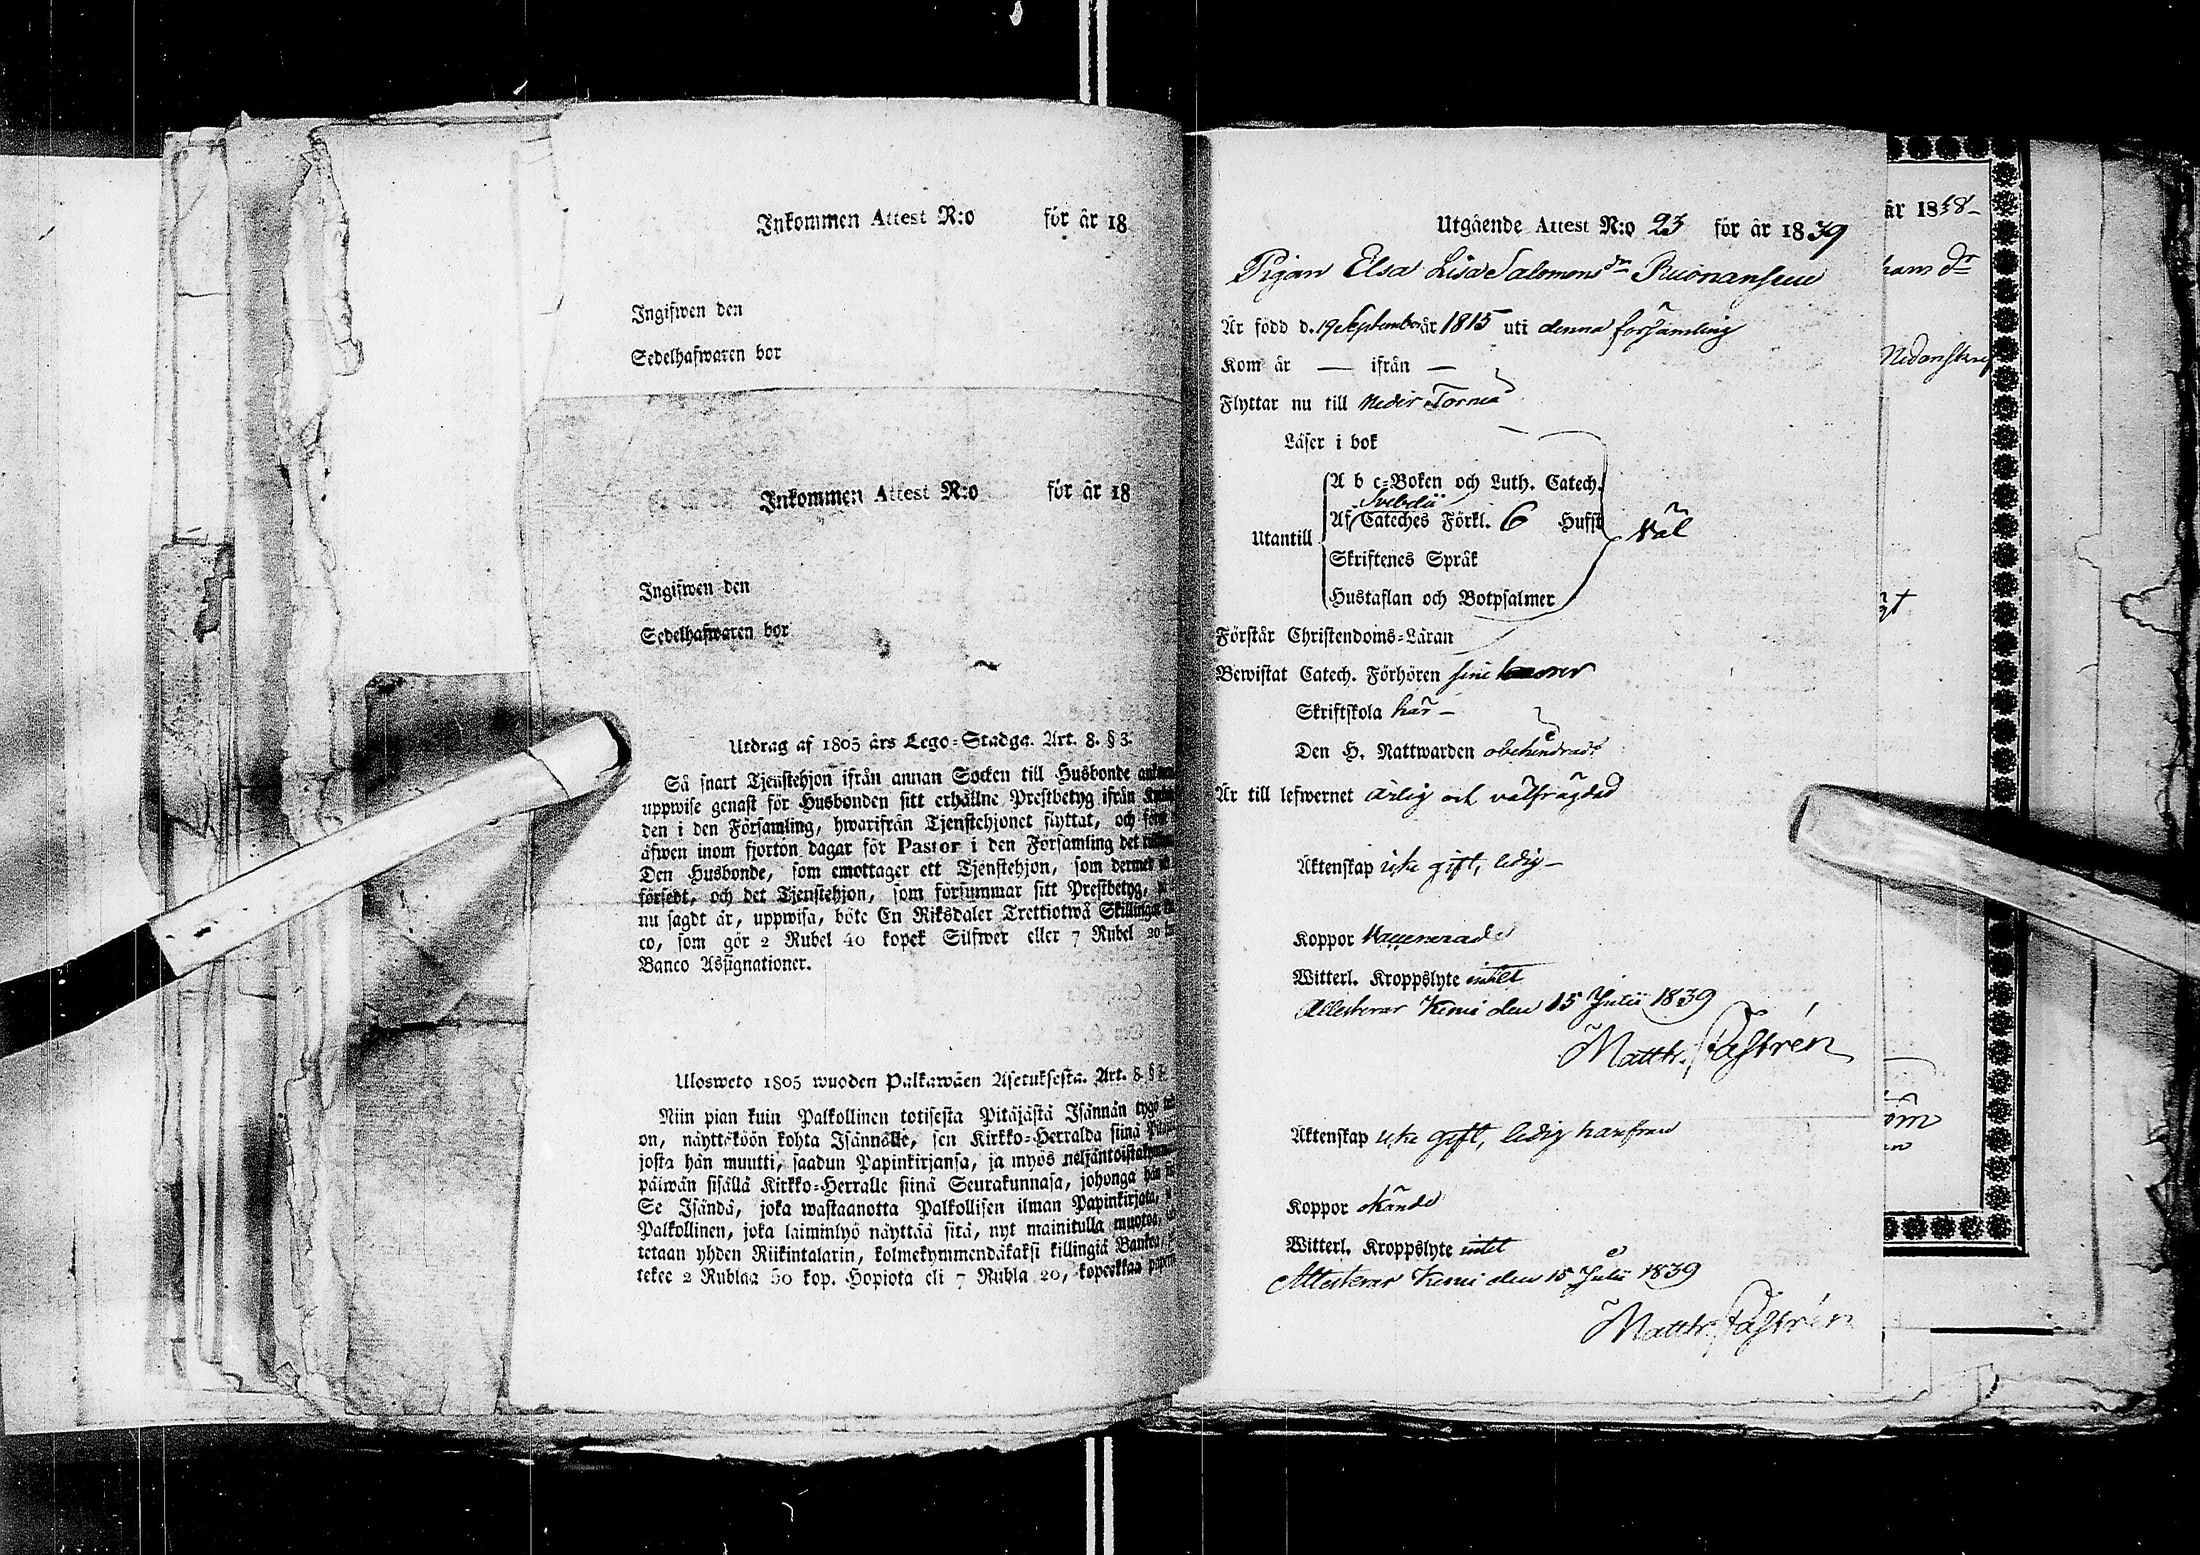 Inkommen Attest N:o för år 18
Ingifwen den
Sedelhafwaren bor
Inkommen Attest N:o för år 18
Ingifwen den
Sedelhafwaren bor
Utdrag af 1805 års Lego=Stadga. Art. 8. § 3.
Så snart Tjenstehjon ifrån annan Socken till Husbonde
uppwise genast för Husbonden sitt erhållne Prestbetyg ifrån
den i den Församling, hwarifrån Tjenstehjonet flyttat, och
äfwen inom fjorton dagar för Pastor i den Församling det
Den Husbonde, som emottager ett Tjenstehjon, som dermed
försedt, och det Tjenstehjon, som försummar sitt Prestbetyg,
nu sagdt är, uppwisa, böte En Riksdaler Trettiotwå Skillingar
co, som gör 2 Rubel 40 kopek Silfwer eller 7 Rubel 20
Banco Assignationer.
Ulosweto 1805 wuoden Palkawäen Asetuksesta. Art. 8 §
Niin pian kuin Palkollinen totisesta Pitäjästä Isännän tygö
on, näyttäköön kohta Isännälle, sen Kirkko=Herralda siinä
josta hän muutti, saadun Papinkirjansa, ja myös
päiwän sisällä Kirkko=Herralle siinä Seurakunnasa, johonga hän
Se Isändä, joka wastaanotta Palkollisen ilman Papinkirjata,
Palkollinen, joka laiminlyö näyttää sitä, nyt mainitulla muotoa,
tetaan yhden Riikintalarin, kolmekymmendäkaksi killingiä Bankoa,
tekee 2 Rublaa 50 kop. Hopiota eli 7 Rubla 20, kopeekkaa
Utgående Attest N:o 23 för år 1839
Pigan Elsa Lisa Salomons dr Ruonansuu
Är född d. 19 September år 1815 uti denna församling
Kom år — ifrån —
Flyttar nu till Neder Torneå
Läser i bok
A b c=Boken och Luth. Catech.
Svebelii
Af Cateches Förkl. 6 Hufst
Utantill
Väl
Skriftenes Språk
Hustaflan och Botpsalmer
Förstår Christendoms=Läran
Bewistat Catech. Förhören
Skriftskola här —
Den H. Nattwarden obehindradt
Är till lefwernet ärlig och välfrägdad
Äktenskap icke gift, ledig —
Koppor Vaccinerade
Witterl. Kroppslyte intet
Attesterar Kemi den 15 Julii 1839
Matth. Castrén
Äktenskap icke gift, ledig härifrån
Koppor
Witterl. Kroppslyte intet
Attesterar Kemi den 15 Julii 1839
Matth. Castrén
år 1838 —